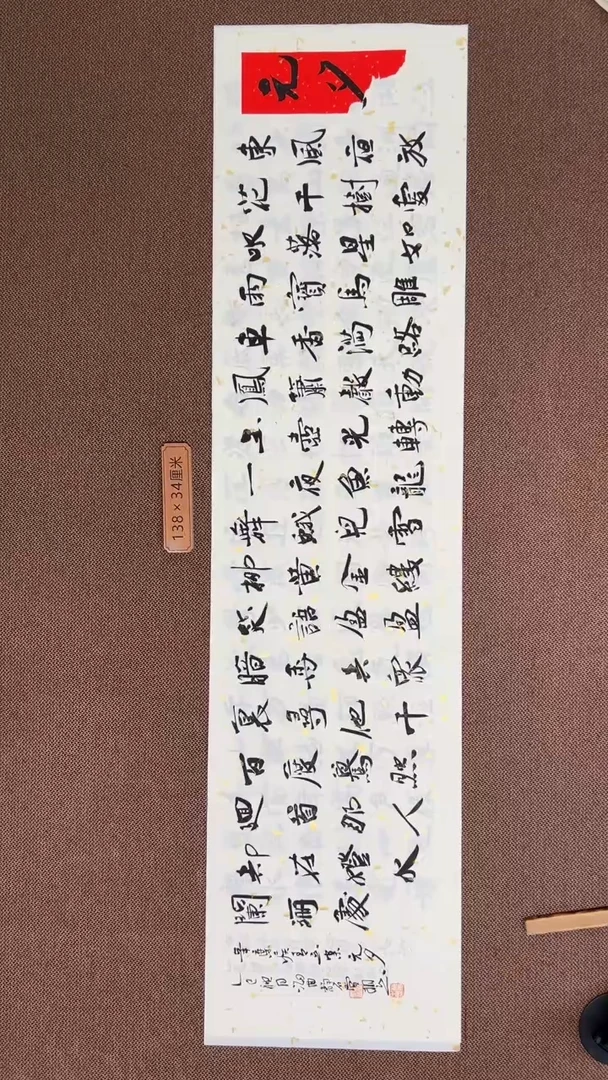 元夕
東風夜放
花千樹更
吹落星如
雨寶馬雕
車香滿路
鳳簫聲動
玉壺光轉
一夜魚龍
舞蛾兒雪
柳黃金縷
笑語盈盈
暗香去衆
裏尋他千
百度驀然
迴首那人
却在燈火
闌珊處
辛棄疾青玉案元夕
乙巳
138×34厘米